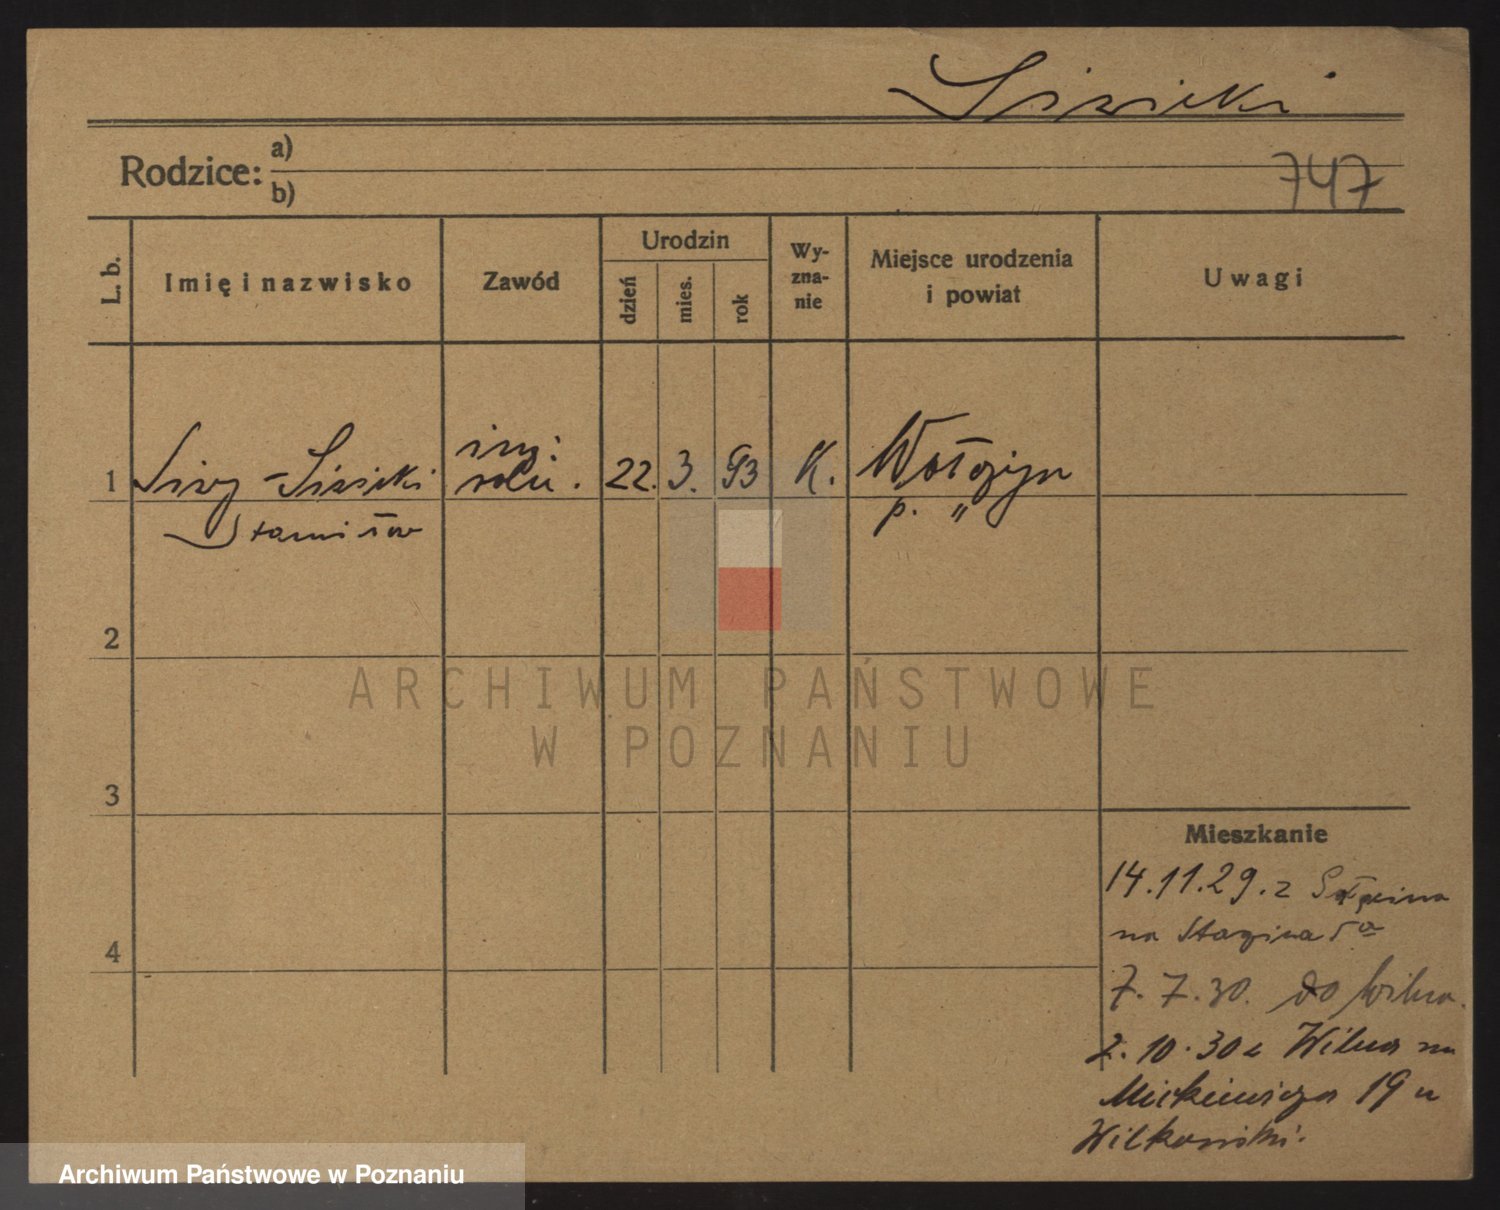 Sizicki
747
Rodzice: a)
b)
L. b.
Imię i nazwisko
Zawód
Urodzin
dzień
mies.
rok
Wy-
zna-
nie
Miejsce urodzenia
i powiat
Uwagi
1
inż.
roln.
22. 3. 93
K.
Wołożyn
p. "
Stanisław
2
ARCHIWUM PAŃSTWOWE
W POZNANIU
3
Mieszkanie
14.11.29. z
na
4
7. 7. 30. do Wilna.
2. 10. 30 z Wilna na
Mickiewicza 19 u
Archiwum Państwowe w Poznaniu